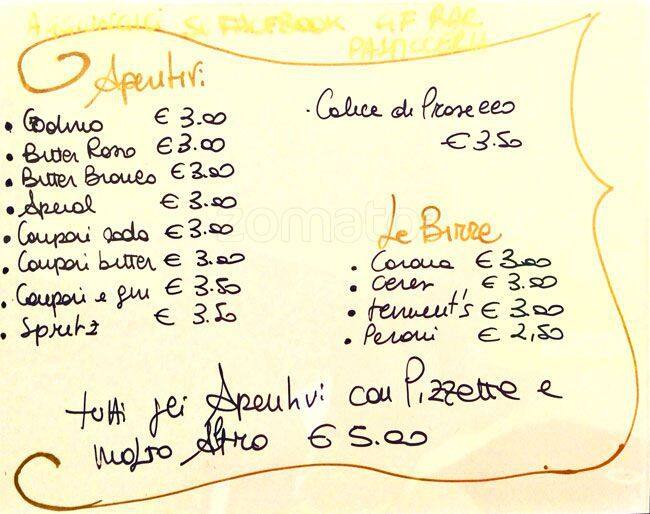 SU FACEBOOK GF BAR
PASTICCERIA
Aperitivi
• Crodino € 3.00
• Bitter Rosso € 3.00
• Bitter Bianco € 3.00
• Aperol € 3.00
• Campari soda € 3.00
• Campari bitter € 3.00
• Campari e gin € 3.50
• Spritz € 3.50
· Calice di Prosecco
€ 3.50
Le Birre
• Corona € 3.00
• Ceres € 3.00
• tennent's € 3.00
• Peroni € 2,50
tutti gli Aperitivi con Pizzette e
molto Altro € 5.00
zomato